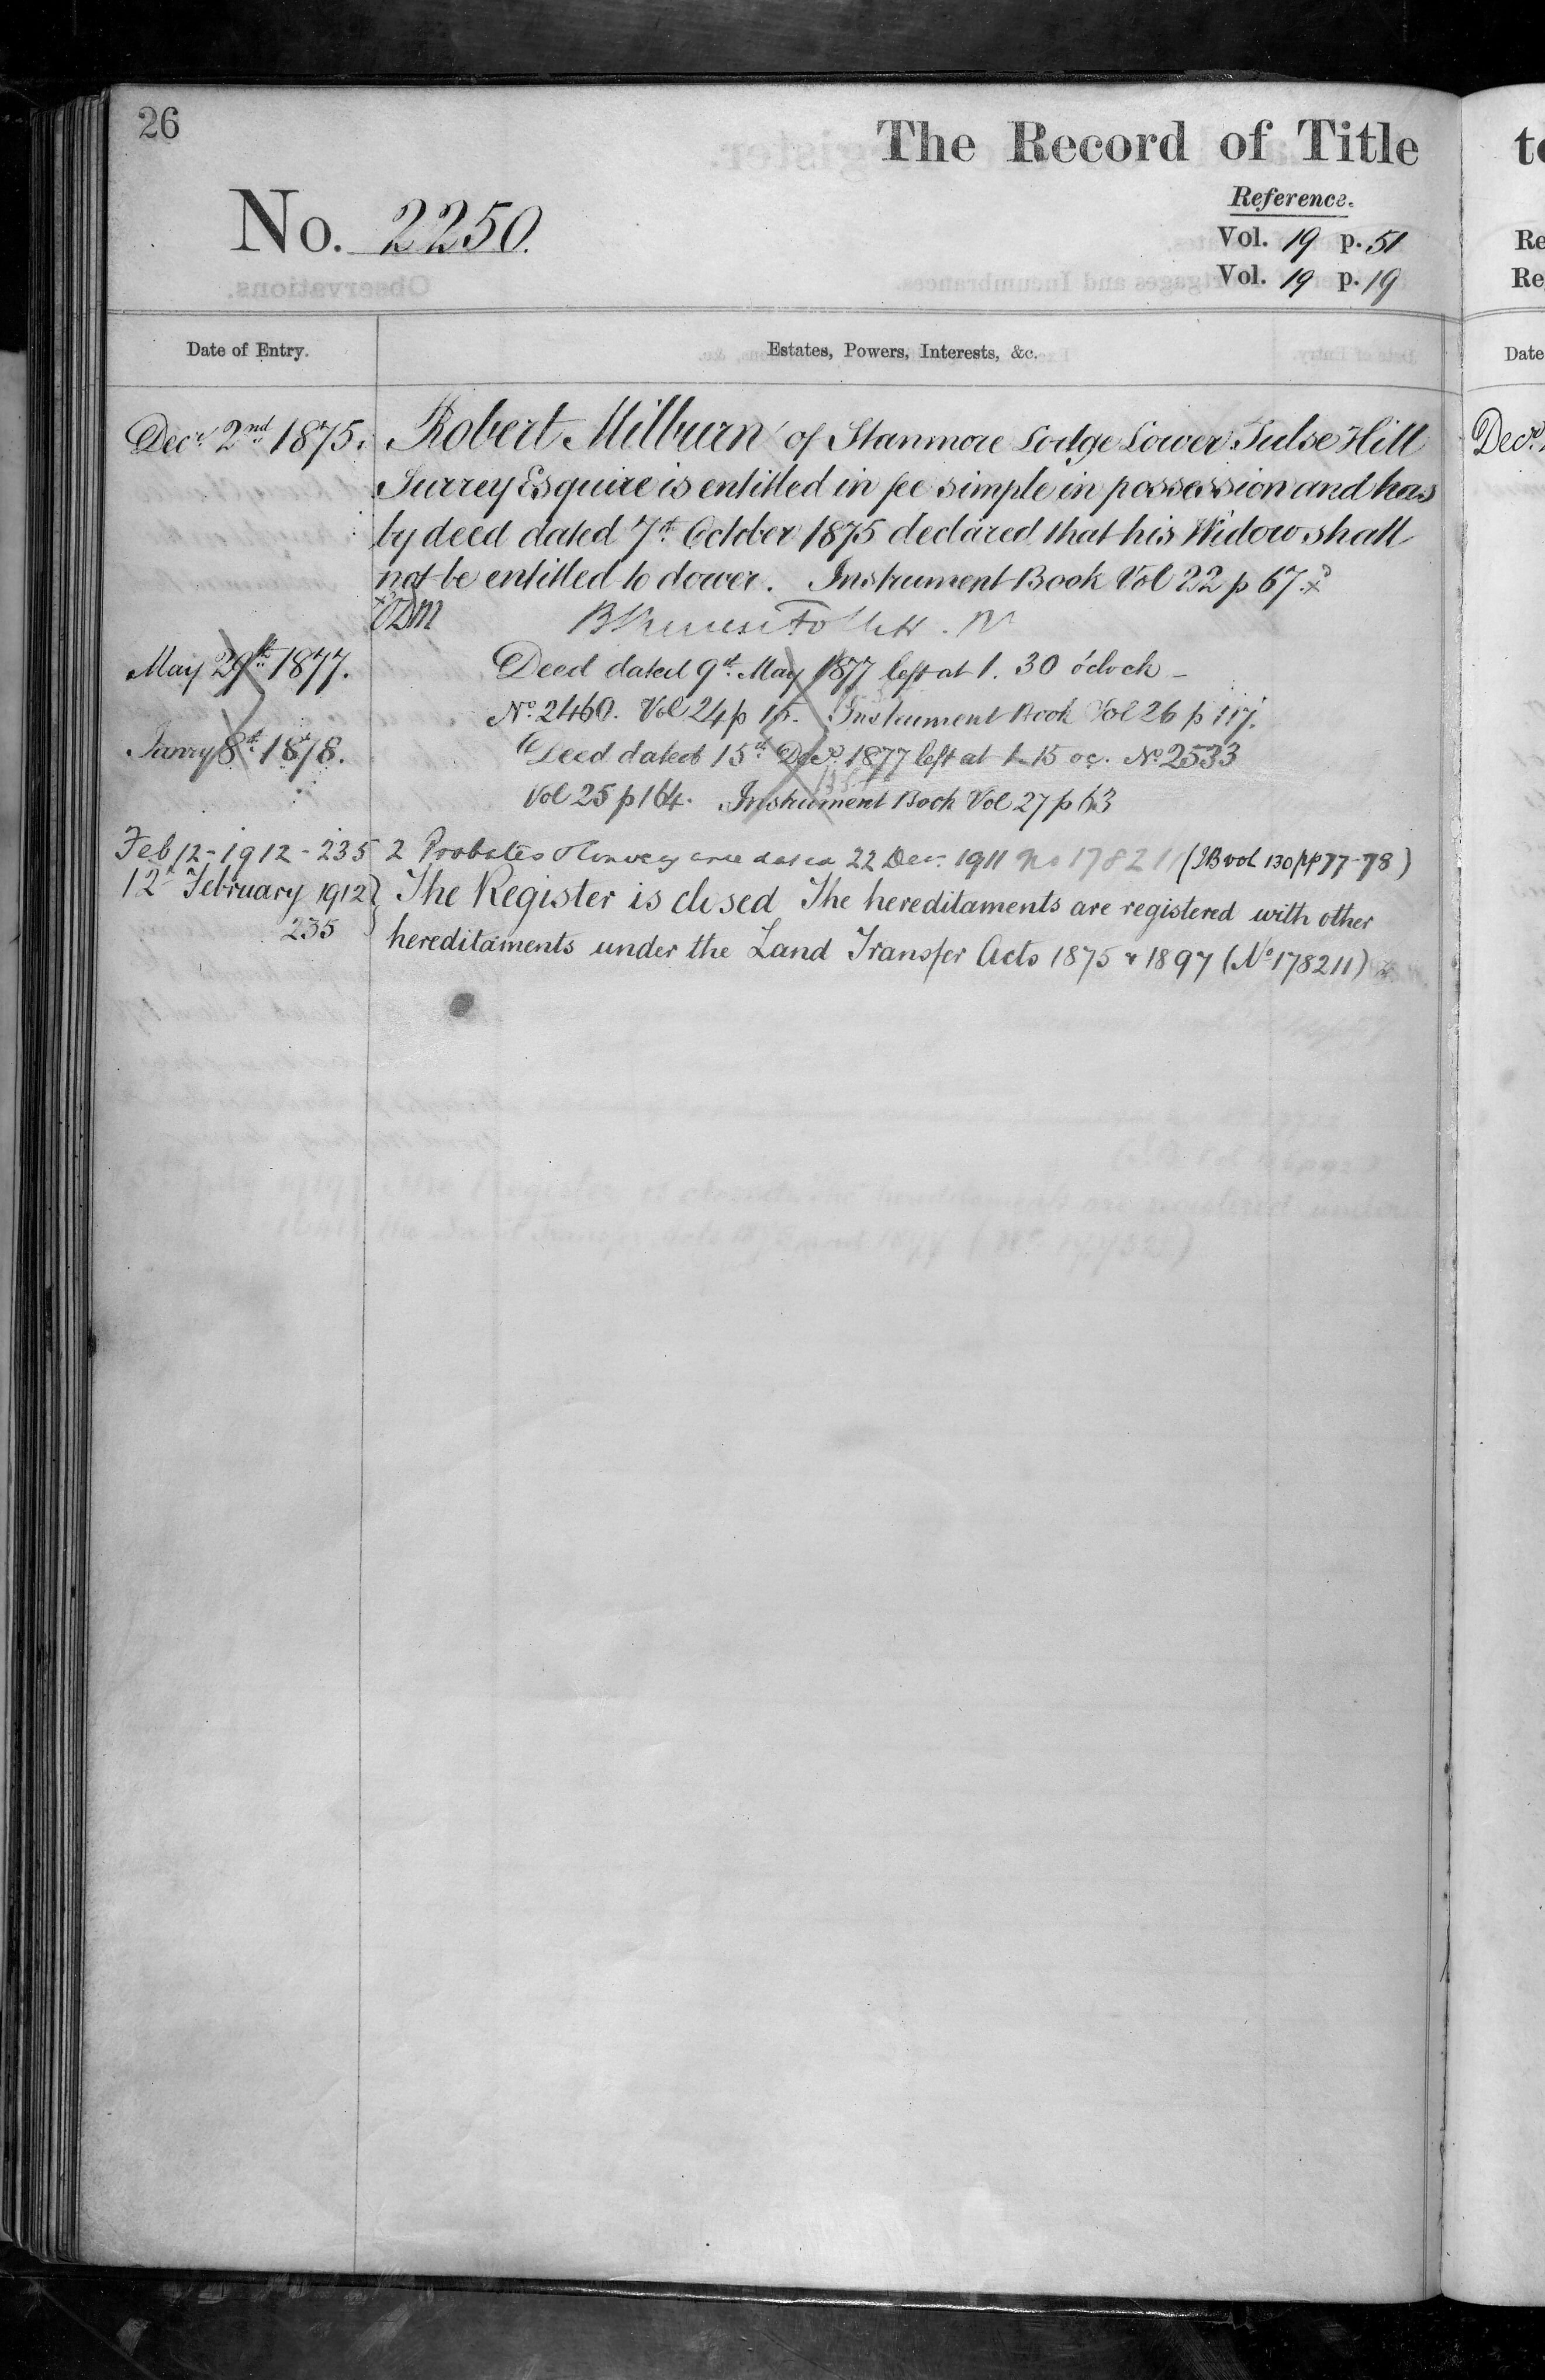 26
The Record of Title
Reference.
No. 2250.
Vol. 19 p. 51
Vol. 19 p. 19
Date of Entry.
Estates, Powers, Interests, &c.
Decr 2nd 1875. Robert Milburn of Stanmore Lodge Lower Tulse Hill
Surrey Esquire is entitled in fee simple in possession and has
by deed dated 7th October 1875 declared that his Widow shall
not be entitled to dower. Instrument Book Vol 22 p 67.
May 29th 1877. Deed dated 9th May 1877 left at 1. 30 o'clock -
No. 2460. Vol 24 p 15. Instrument Book Vol 26 p 117.
Janry 8th 1878. Deed dated 15th Decr 1877 left at 1.15 oc. No 2533
Vol 25 p 164. Instrument Book Vol 27 p 63
Feb 12 - 1912 - 235 2 Probates & Conveyance dated 22 Dec. 1911 No 178211 (IB vol 130 pp 77-78)
12th February 1912 The Register is closed The hereditaments are registered with other
235 hereditaments under the Land Transfer Acts 1875 & 1897 (No 178211)
to
Re
Re
Date
Decr